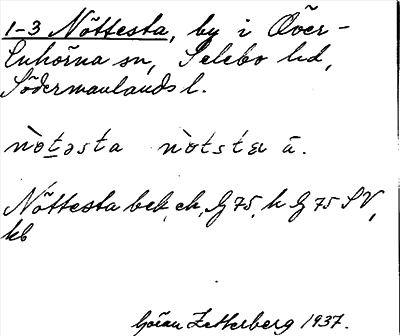 1-3 Nöttesta, by i Över-
Enhörna sn, Selebo hd,
Södermanlands l.
nò̀təsta nò̀tstɐ ä.
Nöttesta bek, ek, G 75, h G 75 SV,
kb
Göran Zetterberg 1937.